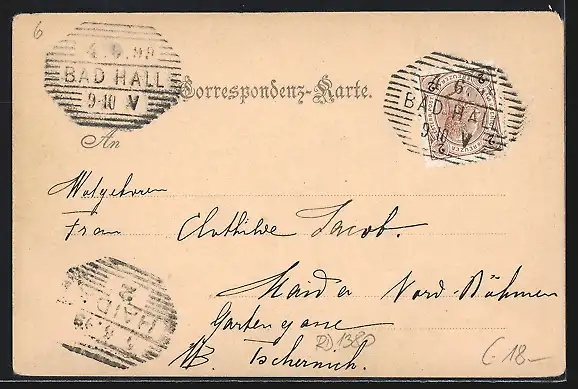 6
4.6.99
BAD HALL
9-10 V
Correspondenz-Karte.
6.
BAD HALL
9-10 V
2 2
2 2
An
Wolgeboren
Frau Clothilde Jacob.
Haida Nord-Böhmen
Gartengasse
HAIDA
99
RD. 1380
C 18.-